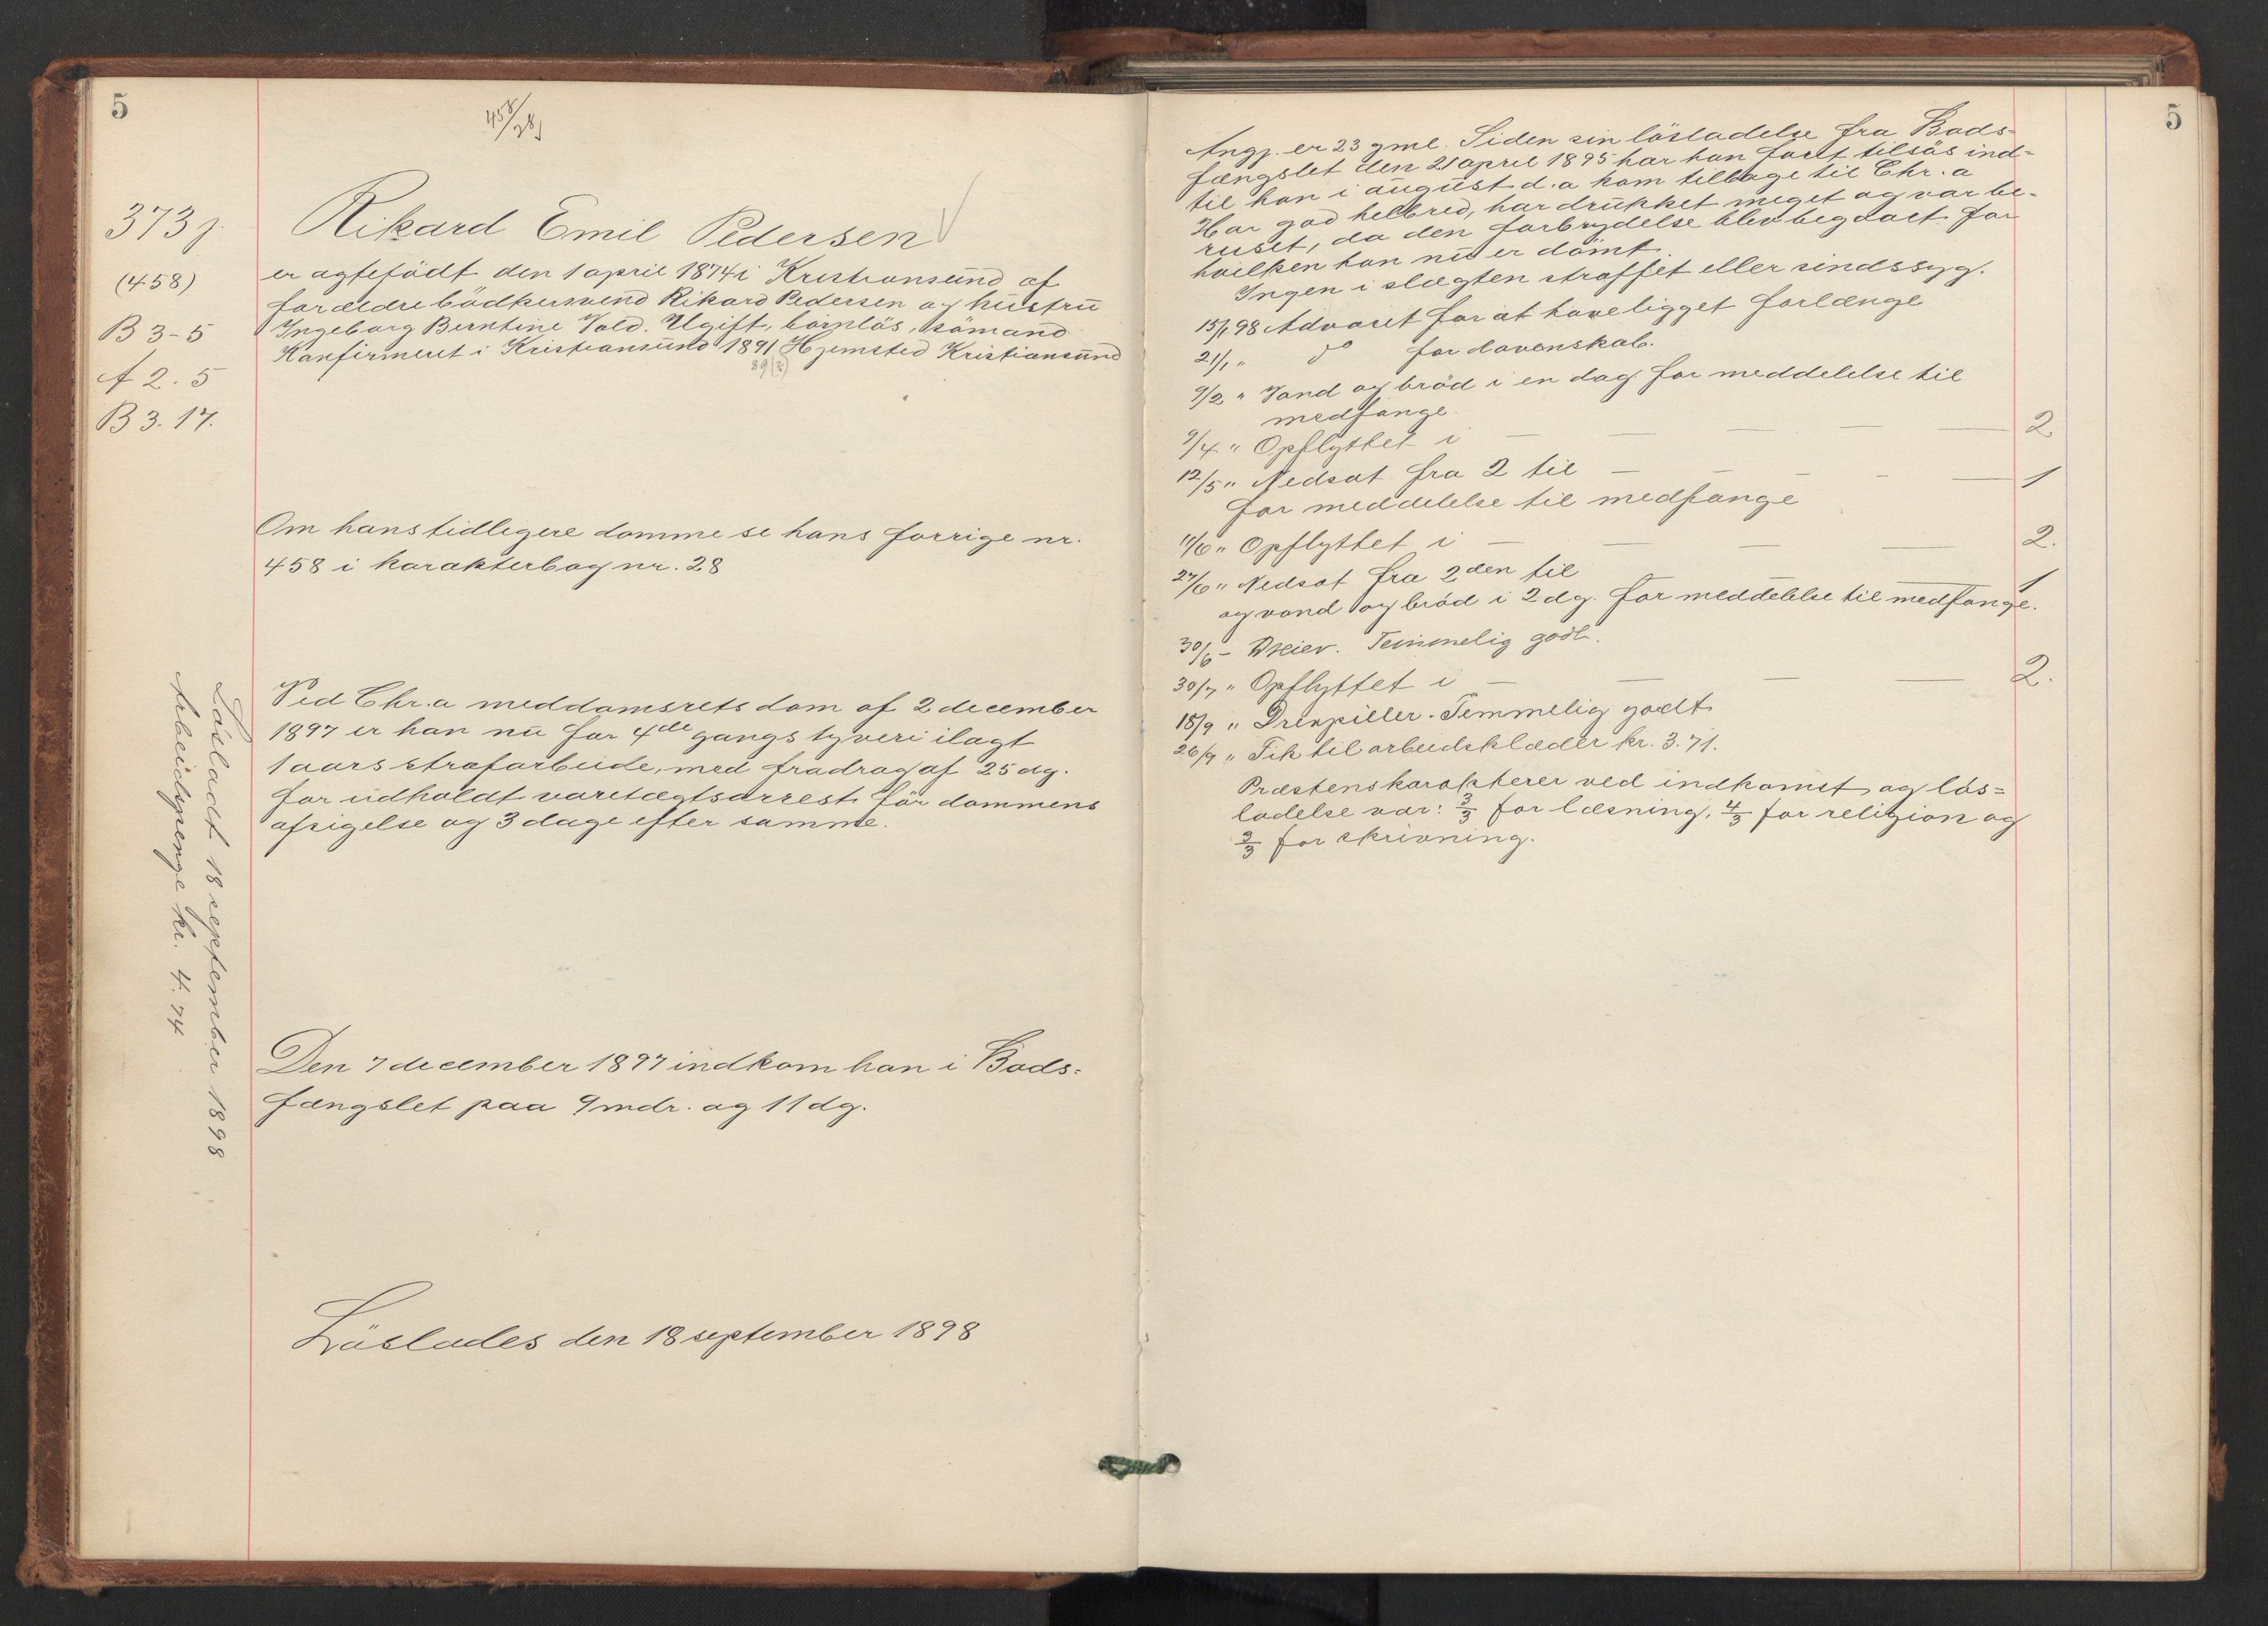 5
458/28
373 j.
(458)
B 3-5
A 2. 5
B 3. 17.
Rikard Emil Pedersen
er agtefödt den 1 april 1874 i Kristiansund af
forældre bödkersvend Rikard Pedersen og hustru
Ingeborg Berntine Vold. Ugift, barnlös, sömand
Konfirmeret i Kristiansund 1891 Hjemsted Kristiansund
89(?)
Om hans tidligere domme se hans forrige nr.
458 i karakterbog nr. 28
Ved Chr.a meddomsrets dom af 2 december
1897 er han nu for 4de gangs tyveri ilagt
1 aars strafarbeide, med fradrag af 25 dg.
for udholdt varetægtsarrest för dommens
afsigelse og 3 dage efter samme.
Löslodt 18 september 1898
Arbeidspenge kr. 4.74
Den 7 december 1897 indkom han i Bods-
fængslet paa 9 mdr. og 11 dg.
Löslades den 18 september 1898
5
Angj. er 23 gml. Siden sin lösladelse fra Bods-
fængslet den 21 april 1895 har han faret tilsös ind-
til han i august d. a kom tilbage til Chr.a
Har god helbred, har drukket meget og var be-
ruset, da den forbrydelse blev begaaet for
hvilken han nu er dömt.
Ingen i slægten straffet eller sindssyg.
15/1 98 Advaret for at have ligget forlænge
21/1 " do for dovenskab.
9/2 " Vand og bröd i en dag for meddelelse til
medfange.
9/4 " Opflyttet i — — — — — 2
12/5 " Nedsat fra 2 til — — — — — 1
for meddelelse til medfange
11/6 " Opflyttet i — — — — 2.
27/6 " Nedsat fra 2den til — — — 1
og vand og bröd i 2 dg. for meddelelse til medfange.
30/6 - Dreier. Temmelig godt.
30/7 " Opflyttet i — — — — 2.
18/9 " Drexpiller. Temmelig godt
26/9 " Fik til arbeidsklæder kr. 3.71.
Præstens karakterer ved indkomst og lös-
ladelse var: 3/3 for læsning, 4/3 for religion og
3/3 for skrivning.